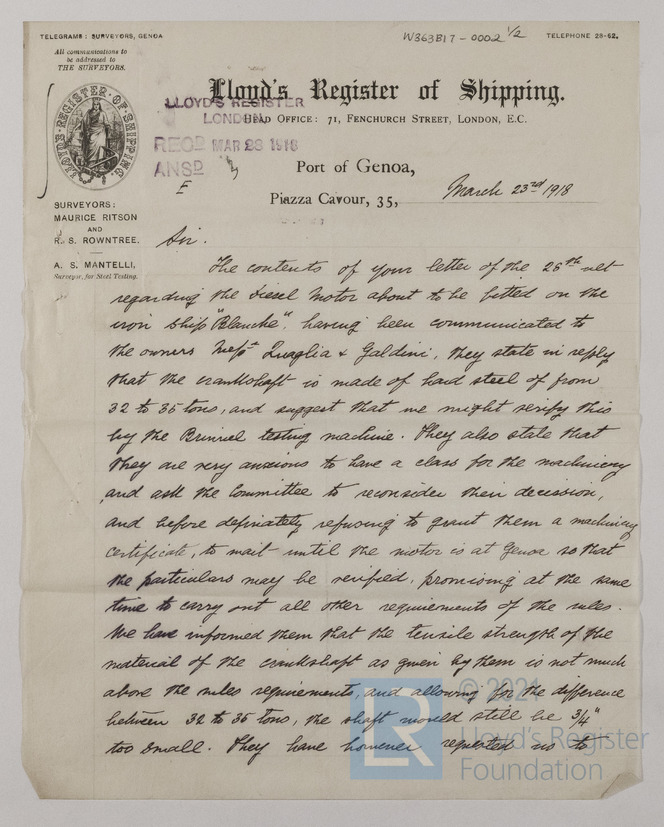 TELEGRAMS: SURVEYORS, GENOA
W363B17-0002 1/2
TELEPHONE 28-62.
All communications to
be addressed to
THE SURVEYORS.
Lloyd's Register of Shipping.
HEAD OFFICE: 71, FENCHURCH STREET, LONDON, E.C.
LLOYD'S REGISTER OF SHIPPING
LLOYD'S REGISTER
LONDON
RECD MAR 28 1918
ANSD
E
Port of Genoa,
Piazza Cavour, 35, March 23rd 1918
SURVEYORS:
MAURICE RITSON
AND
R. S. ROWNTREE.
A. S. MANTELLI,
Surveyor, for Steel Testing.
Sir.
The contents of your letter of the 26th ult
regarding the Diesel Motor about to be fitted on the
iron ship "Blanche", having been communicated to
the owners Messrs Quaglia & Galdini, they state in reply
that the crankshaft is made of hard steel of from
32 to 35 tons, and suggest that we might verify this
by the Brinnel testing machine. They also state that
they are very anxious to have a class for the machinery
and ask the Committee to reconsider their decession,
and before definately refusing to grant them a machinery
certificate, to wait until the motor is at Genoa so that
the particulars may be verified, promising at the same
time to carry out all other requirements of the rules.
We have informed them that the tensile strength of the
material of the crankshaft as given by them is not much
above the rules requirements, and allowing for the difference
between 32 to 35 tons, the shaft would still be 3/4"
too small. They have however requested us to
© 2021
LR
Lloyd's Register
Foundation